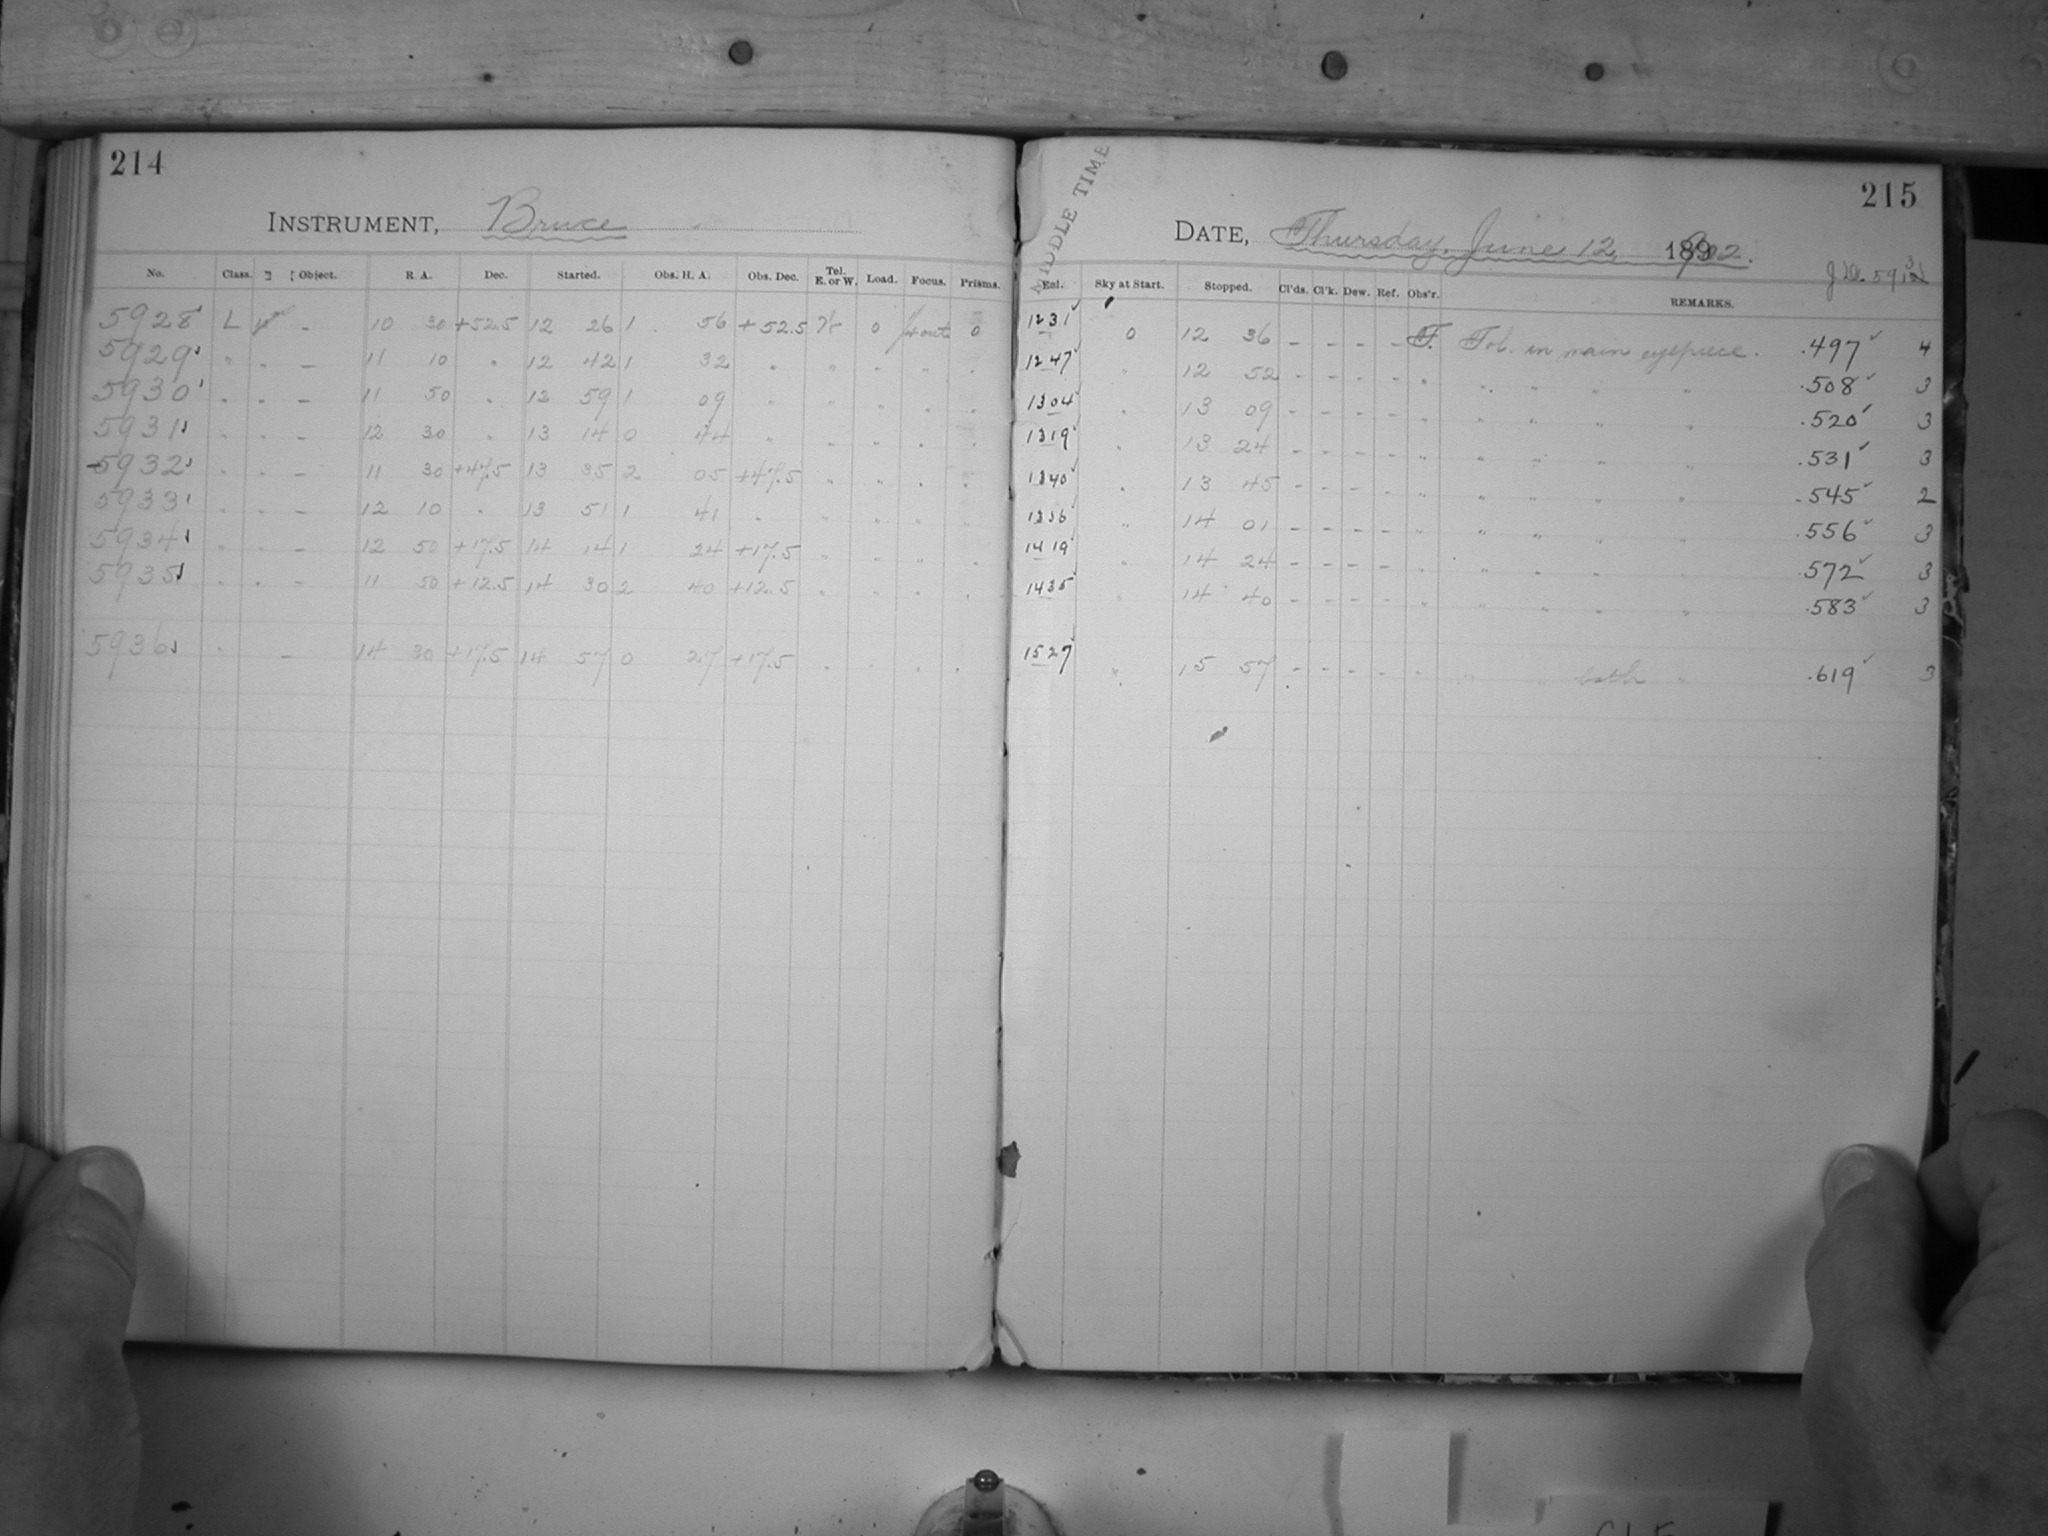 214
INSTRUMENT, Bruce
No. Class. Object. R. A. Dec. Started. Obs. H. A. Obs. Dec. Tel. E. or W. Load. Focus. Prisms.
5928 L 10 30 +52.5 12 26 1 56 +52.5 0 0
5929 " " – 11 10 " 12 42 1 32 " " " " "
5930 " " – 11 50 " 12 59 1 09 " " " " "
5931 " " – 12 30 " 13 14 0 44 " " " " "
5932 " " – 11 30 +47.5 13 35 2 05 +47.5 " " " "
5933 " " – 12 10 " 13 51 1 41 " " " " "
5934 " " – 12 50 +17.5 14 14 1 24 +17.5 " " " "
5935 " " – 11 50 +12.5 14 30 2 40 +12.5 " " " "
5936 " – 14 30 +17.5 14 57 0 27 +17.5 " " " "
215
MIDDLE TIME
DATE, Thursday, June 12, 1902.
J.D. 5913
Sky at Start. Stopped. Cl'ds. Cl'k. Dew. Ref. Obs'r. REMARKS.
1231 0 12 36 – – – – F. Fol. in main eyepiece. .497 4
1247 " 12 52 – – – – " " " " " .508 3
1304 " 13 09 – – – – " " " " " .520 3
1319 " 13 24 – – – – " " " " " .531 3
1340 " 13 45 – – – – " " " " " .545 2
1356 " 14 01 – – – – " " " " " .556 3
1419 " 14 24 – – – – " " " " " .572 3
1435 " 14 40 – – – – " " " " " .583 3
1527 " 15 57 – – – – " " " both " .619 3